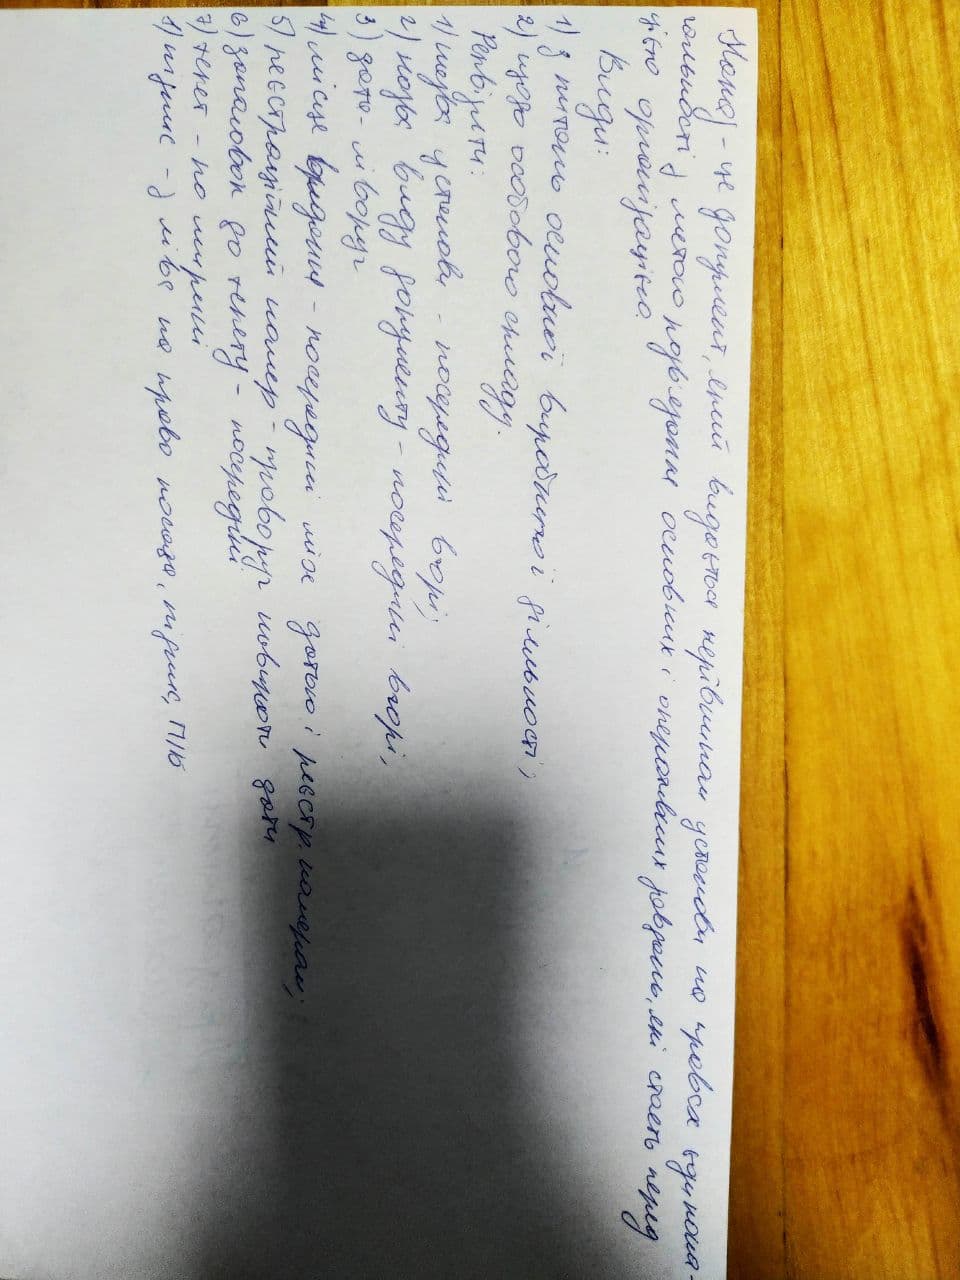 Наказ - це документ, який видається керівником установи на правах єдинона-
чальності з метою розв'язання основних і оперативних завдань, які стоять перед
цією організацією.
Види:
1) з питань основної виробничої діяльності;
2) щодо особового складу.
Реквізити:
1) назва установи - посередині вгорі;
2) назва виду документу - посередині вгорі,
3) дата - ліворуч
4) місце видання - посередині між датою і реєстр. номером;
5) реєстраційний номер - праворуч навпроти дати
6) заголовок до тексту - посередині
7) текст - по ширині
8) підпис - з ліва на право посада, підпис, П/Б